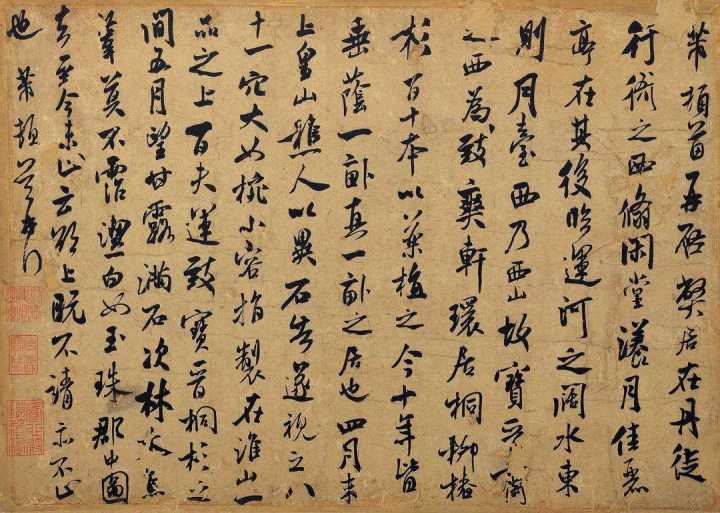 芾頓首再啟弊居在丹徒
行衙之西翛閑堂漾月佳麗
亭在其後臨運河之闊水東
則月臺西乃西山故寶晉齋
之西為致爽軒環居桐柳椐
杉百十本以藥植之今十年皆
垂蔭一畝真一畝之居也四月末
上皇山樵人以異石告遂視之八
十一穴大如椀小容指製在淮山一
品之上百夫運致寶晉桐杉之
間五月望甘露滿石次林木焦
葦莫不霑潔白如玉珠郡中圖
去至今未止云欲上既不請亦不止
也芾頓首再拜